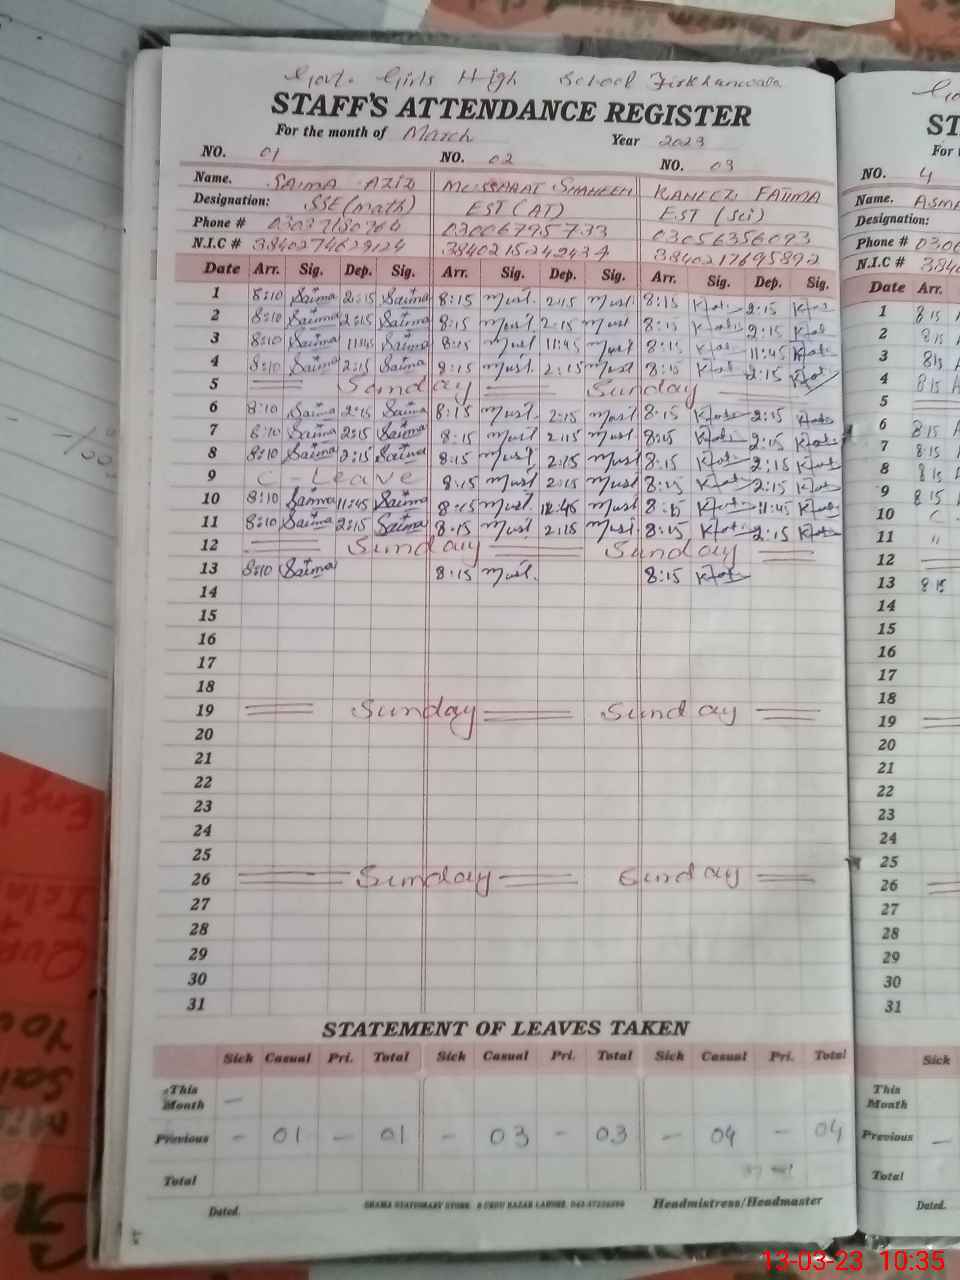 Govt. Girls High School
STAFF'S ATTENDANCE REGISTER
For the month of March Year 2023
NO. 01 NO. 02 NO. 03
Name. SAIMA AZIZ MUSSARAT SHAHEEN KANEEZ FATIMA
Designation: SSE(math) EST (AT) EST (Sci)
Phone # 03006795733 03056356093
N.I.C # 3840274629124 3840217695892
Date Arr. Sig. Dep. Sig. Arr. Sig. Dep. Sig. Arr. Sig. Dep. Sig.
1 8:10 Saima 2:15 Saima 8:15 Must. 2:15 Must. 8:15 2:15
2 8:10 Saima 2:15 Saima 8:15 Must 2:15 Must 8:15 2:15
3 8:10 Saima 11:45 Saima 8:15 Must 11:45 Must 8:15 11:45
4 8:10 Saima 2:15 Saima 8:15 Must. 2:15 Must 8:15 2:15
5 Sunday Sunday
6 8:10 Saima 2:15 Saima 8:15 Must. 2:15 Must 8:15 2:15
7 8:10 Saima 2:15 Saima 8:15 Must 2:15 Must. 8:15 2:15
8 8:10 Saima 2:15 Saima 8:15 Must 2:15 Must 8:15 2:15
9 C - Leave 8:15 Must 2:15 Must 8:15 2:15
10 8:10 Saima 11:45 Saima 8:15 Must Must 8:15 11:45
11 8:10 Saima 2:15 Saima 8:15 Must 2:15 Must. 8:15 2:15
12 Sunday Sunday
13 8:10 Saima 8:15 Must. 8:15
14
15
16
17
18
19 Sunday Sunday
20
21
22
23
24
25
26 Sunday Sunday
27
28
29
30
31
STATEMENT OF LEAVES TAKEN
Sick Casual Pri. Total Sick Casual Pri. Total Sick Casual Pri. Total
This Month –
Previous – 01 – 01 – 03 – 03 – 04 – 04
Total
Dated. Headmistress/Headmaster
ST
For
NO. 4
Name. ASMA
Designation:
Phone # 0300
N.I.C # 3840
Date Arr.
1 8 15
2 8 15
3 8 15
4 8 15
5
6 8 15
7 8 15
8 8 15
9 8 15
10 C
11 "
12
13 8 15
14
15
16
17
18
19
20
21
22
23
24
25
26
27
28
29
30
31
Sick
This Month
Previous –
Total
Dated.
13-03-23 10:35